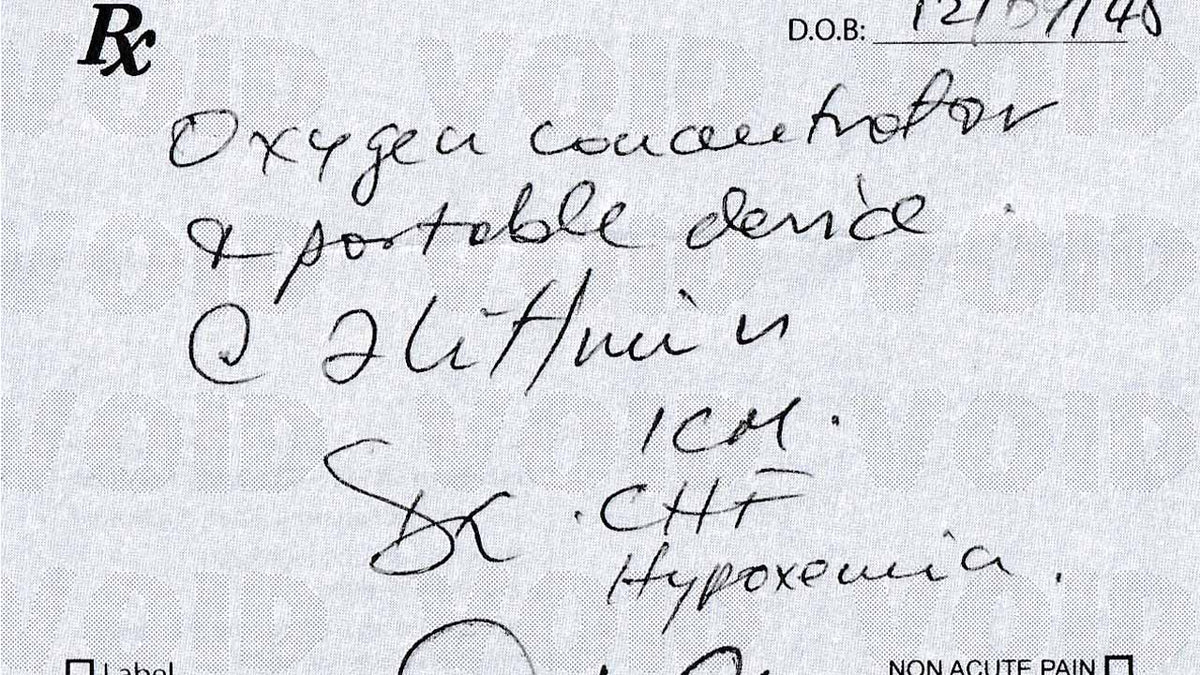 Rx
D.O.B:
Oxygen concentrator
& portable device
@ 2lit/min
ICM.
Dx . CHF
Hypoxemia.
Label
NON ACUTE PAIN